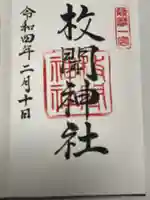 薩摩一宮
枚聞神社
令和四年二月十日